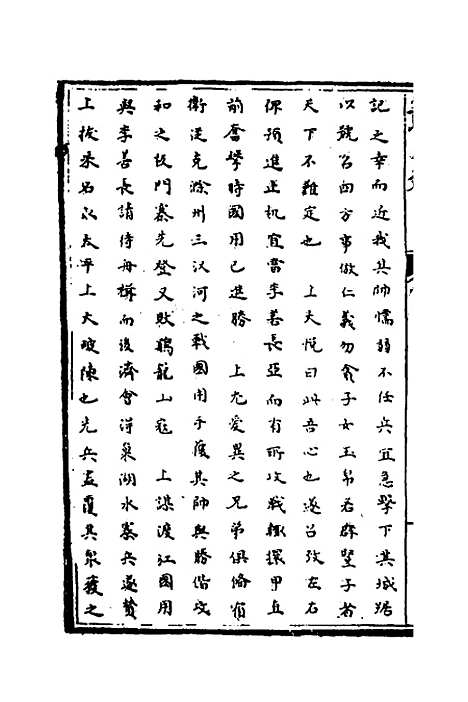 記之幸而近我其帥懦弱不任兵宜急擊下其城踞
以號召四方事倣仁義勿貪子女玉帛若群豎子者
天下不難定也　上大悅曰此吾心也遂召致左右
俾預進止机宜當李善長亞而有所攻戰輒擐甲直
前奮擊時國用已進勝　上尤愛異之兄弟俱備宿
衛從克滁州三汊河之戰國用手馘其帥與勝偕攻
和之板門寨先登又敗鷄龍山寇　上謀渡江國用
與李善長請侍舟楫而後濟會得巢湖水寨兵遂贊
上拔采石取太平上大破陳也先兵盡覆其衆獲之